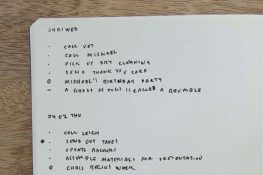 04.01.WED
· CALL VET
· CALL MICHAEL
· PICK UP DRY CLEANING
· SEND THANK YOU CARD
O MICHAEL'S BIRTHDAY PARTY
– A GROUP OF PUGS IS CALLED A GRUMBLE
04.02.THU
· CALL LEIGH
* · SEND OUT TAXES
· UPDATE
· ASSEMBLE MATERIALS FOR PRESENTATION
O CHRIS BEGINS WORK